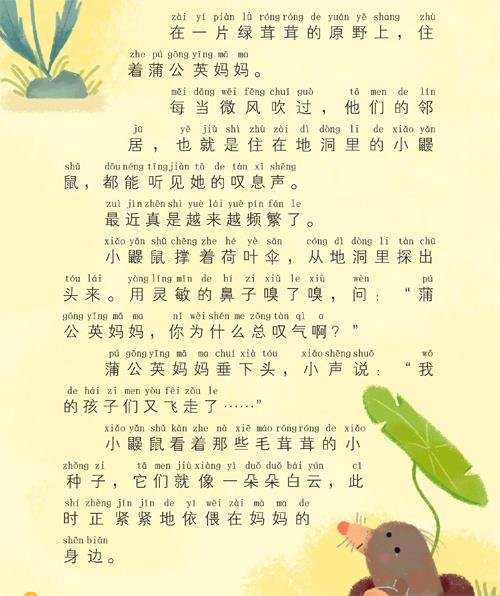 zài yí piàn lǜ róng róng de yuán yě shang zhù
在一片绿茸茸的原野上，住
zhe pú gōng yīng mā ma
着蒲公英妈妈。
měi dāng wēi fēng chuī guò tā men de lín
每当微风吹过，他们的邻
jū yě jiù shì zhù zài dì dòng lǐ de xiǎo yǎn
居，也就是住在地洞里的小鼹
shǔ dōu néng tīng jiàn tā de tàn xī shēng
鼠，都能听见她的叹息声。
zuì jìn zhēn shì yuè lái yuè pín fán le
最近真是越来越频繁了。
xiǎo yǎn shǔ chēng zhe hé yè sǎn cóng dì dòng lǐ tàn chū
小鼹鼠撑着荷叶伞，从地洞里探出
tóu lái yòng líng mǐn de bí zi xiù le xiù wèn pú
头来。用灵敏的鼻子嗅了嗅，问：“蒲
gōng yīng mā ma nǐ wèi shén me zǒng tàn qì a
公英妈妈，你为什么总叹气啊？”
pú gōng yīng mā ma chuí xià tóu xiǎo shēng shuō wǒ
蒲公英妈妈垂下头，小声说：“我
de hái zi men yòu fēi zǒu le
的孩子们又飞走了……”
xiǎo yǎn shǔ kàn zhe nà xiē máo róng róng de xiǎo
小鼹鼠看着那些毛茸茸的小
zhǒng zi tā men jiù xiàng yì duǒ duǒ bái yún cǐ
种子，它们就像一朵朵白云，此
shí zhèng jǐn jǐn de yī wēi zài mā ma de
时正紧紧地依偎在妈妈的
shēn biān
身边。